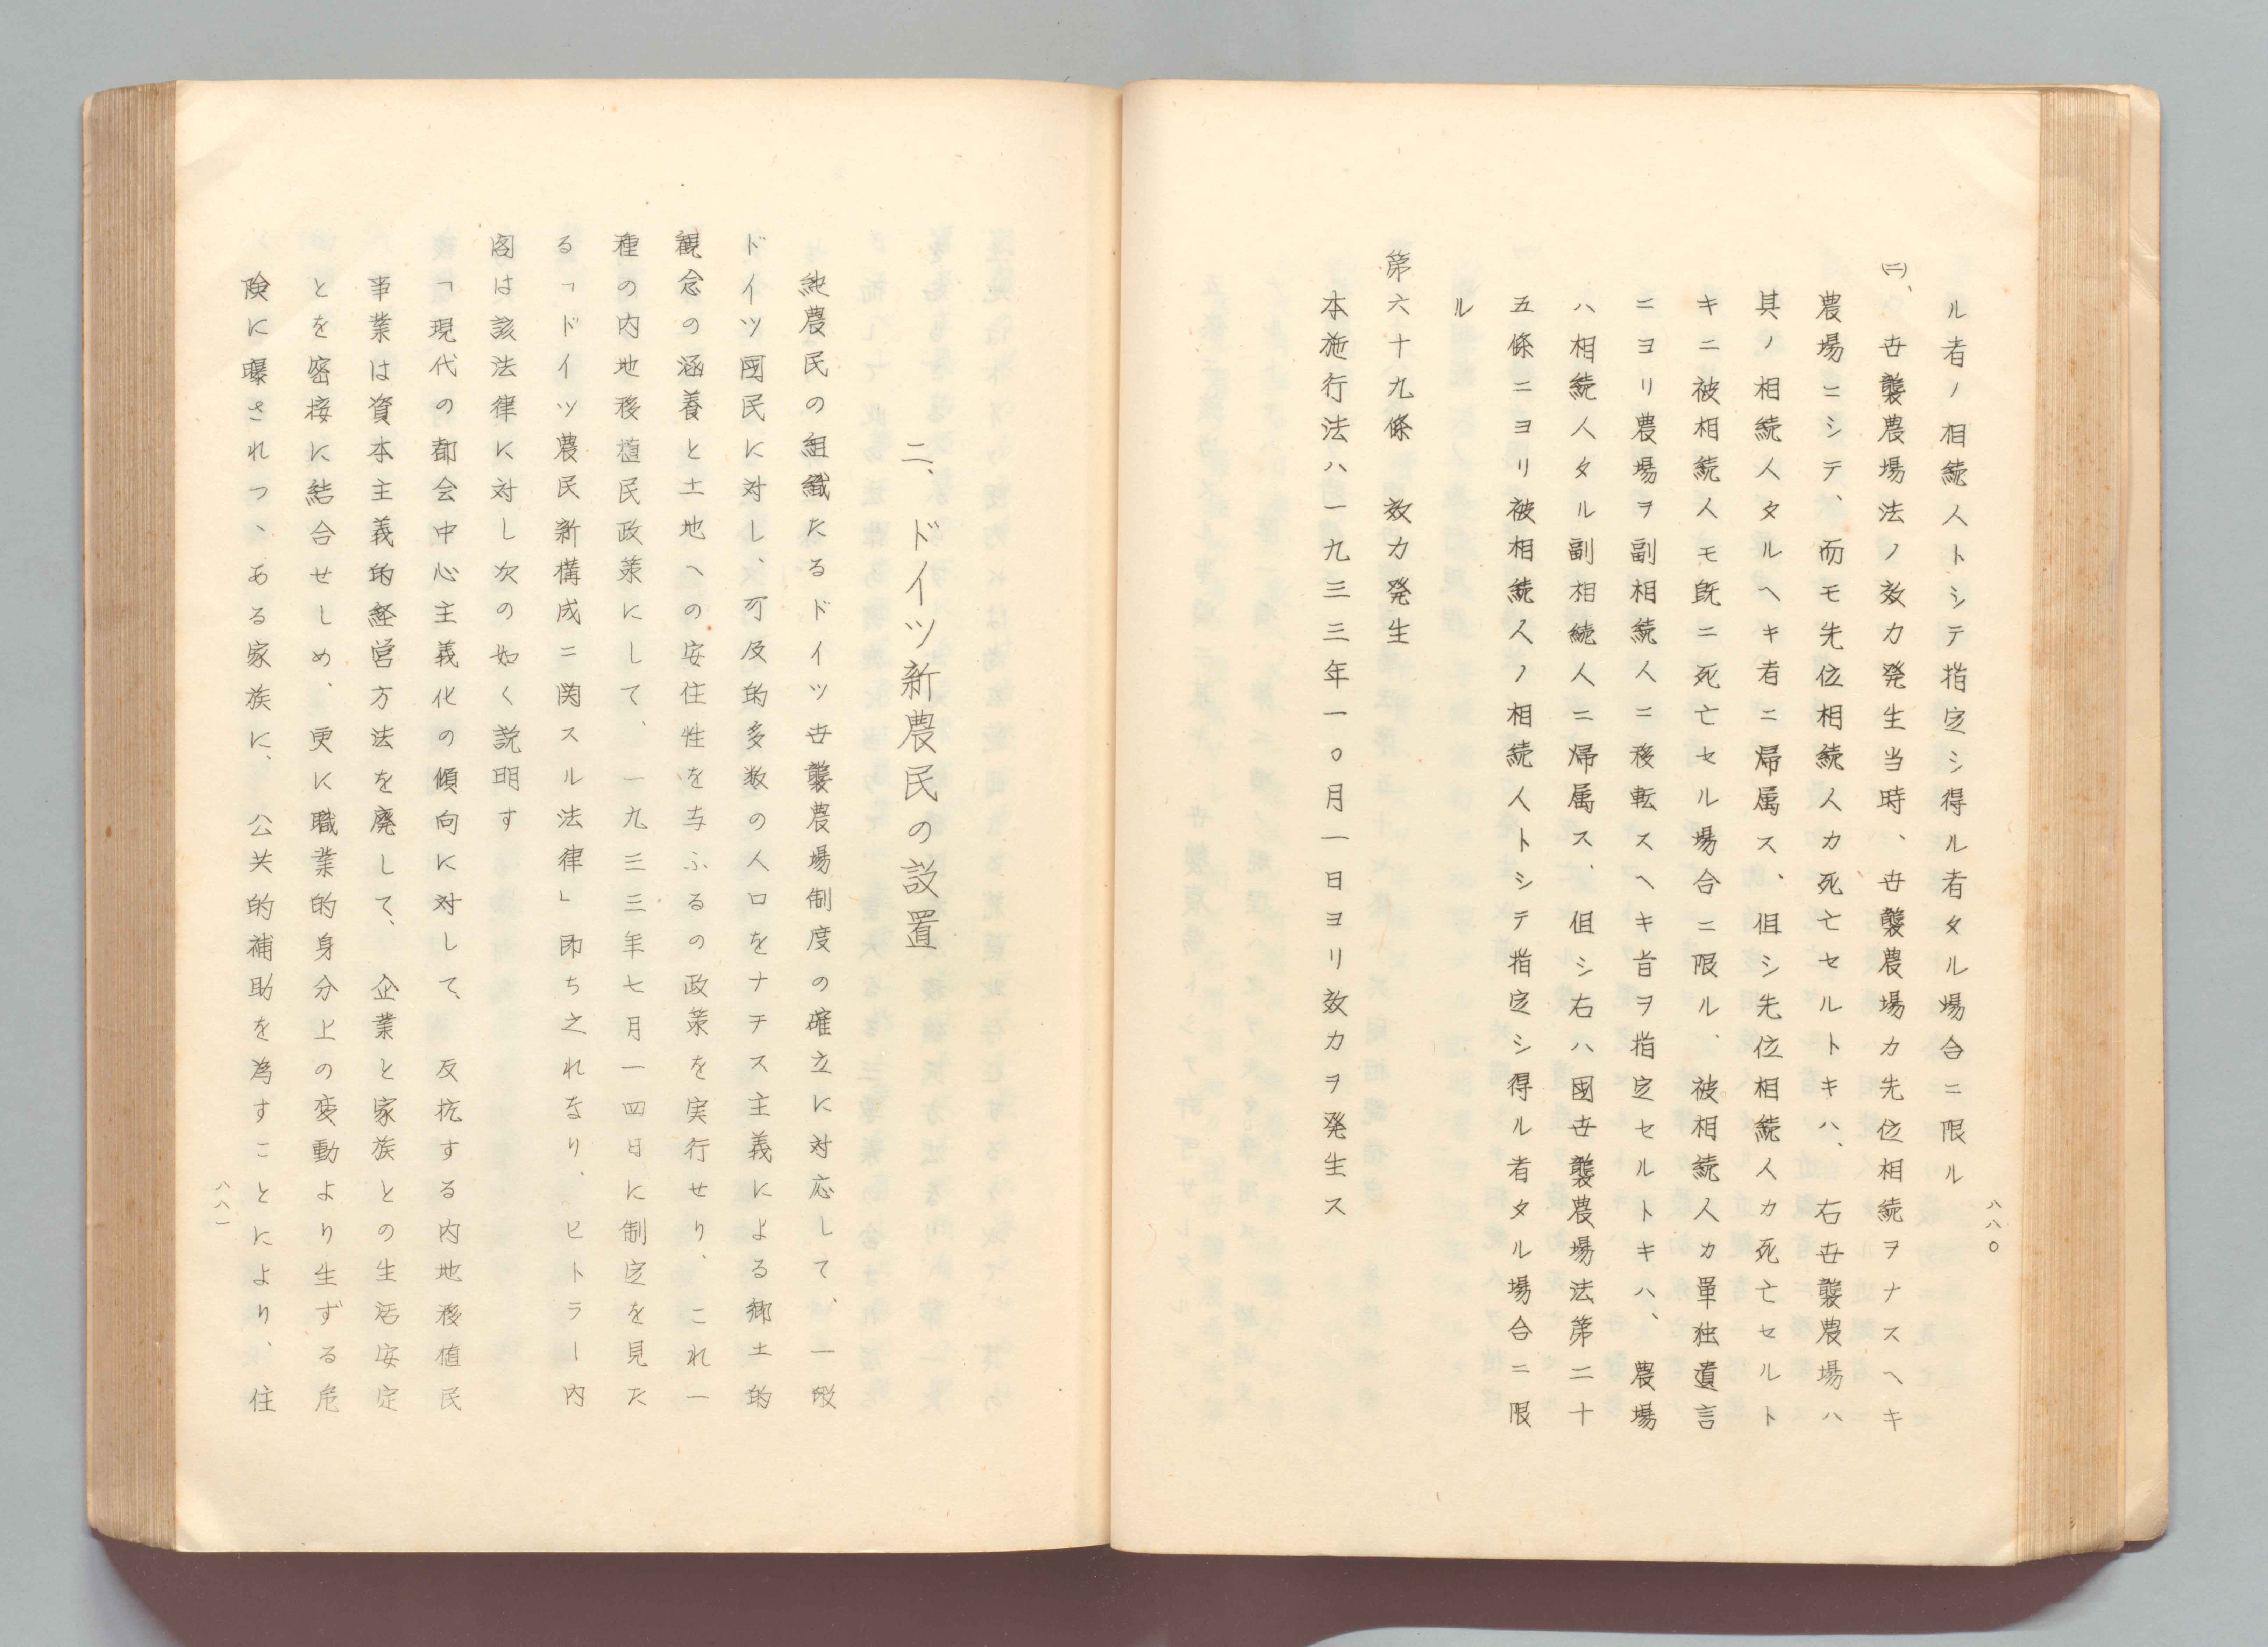 ル者ノ相続人トシテ指定シ得ル者タル場合ニ限ル
㈡、世襲農場法ノ效力発生当時、世襲農場カ先位相続ヲナスヘキ
農場ニシテ、而モ先位相続人カ死亡セルトキハ、右世襲農場ハ
其ノ相続人タルヘキ者ニ帰属ス、但シ先位相続人カ死亡セルト
キニ被相続人モ既ニ死亡セル場合ニ限ル、被相続人カ單独遺言
ニヨリ農場ヲ副相続人ニ移転スヘキ旨ヲ指定セルトキハ、農場
ハ相続人タル副相続人ニ帰属ス、但シ右ハ國世襲農場法第二十
五條ニヨリ被相続人ノ相続人トシテ指定シ得ル者タル場合ニ限
ル
第六十九條　效力発生
本施行法ハ一九三三年一〇月一日ヨリ效力ヲ発生ス
八八〇
二、ドイツ新農民の設置
純農民の組織たるドイツ世襲農場制度の確立に対応して、一般
ドイツ國民に対し、可及的多数の人口をナチス主義による郷土的
観念の涵養と土地への安住性を与ふるの政策を実行せり、これ一
種の内地移植民政策にして、一九三三年七月一四日に制定を見た
る「ドイツ農民新構成ニ関スル法律」即ち之れなり、ヒトラー内
閣は該法律に対し次の如く説明す
「現代の都会中心主義化の傾向に対して、反抗する内地移植民
事業は資本主義的経営方法を廃して、企業と家族との生活安定
とを密接に結合せしめ、更に職業的身分上の変動より生ずる危
険に曝されつゝある家族に、公共的補助を為すことにより、住
八八一